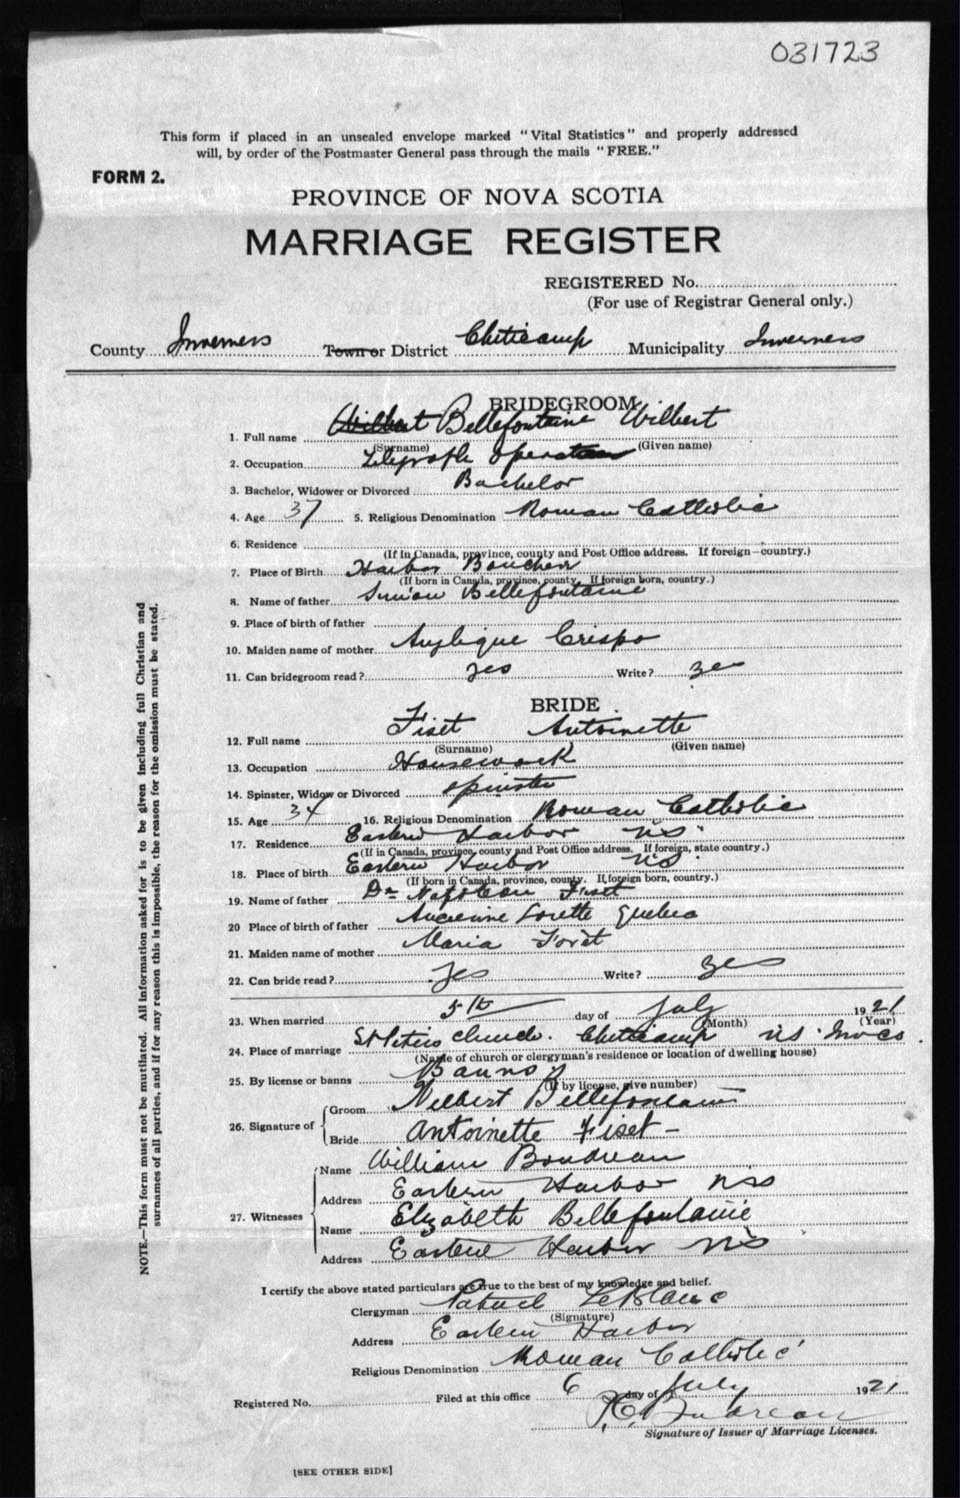 031723
This form if placed in an unsealed envelope marked "Vital Statistics" and properly addressed
will, by order of the Postmaster General pass through the mails "FREE."
FORM 2.
PROVINCE OF NOVA SCOTIA
MARRIAGE REGISTER
REGISTERED No.
(For use of Registrar General only.)
County Inverness Town or District Cheticamp Municipality Inverness
BRIDEGROOM
1. Full name Wilbert Bellefontaine Wilbert
(Surname) (Given name)
2. Occupation Telegraph Operator
3. Bachelor, Widower or Divorced Bachelor
4. Age 37 5. Religious Denomination Roman Catholic
6. Residence
(If in Canada, province, county and Post Office address. If foreign—country.)
7. Place of Birth Harbor Boucher
(If born in Canada, province, county. If foreign born, country.)
8. Name of father Simion Bellefontaine
9. Place of birth of father
10. Maiden name of mother Anglique Crispo
11. Can bridegroom read? yes Write? yes
BRIDE
12. Full name Fiset Antoinette
(Surname) (Given name)
13. Occupation Housework
14. Spinster, Widow or Divorced spinster
15. Age 34 16. Religious Denomination Roman Catholic
17. Residence Eastern Harbor NS
(If in Canada, province, county and Post Office address. If foreign, state country.)
18. Place of birth Eastern Harbor NS
(If born in Canada, province, county. If foreign born, country.)
19. Name of father Dr Napoleon Fiset
20 Place of birth of father Ancienne Lorette Quebec
21. Maiden name of mother Maria
22. Can bride read? yes Write? yes
23. When married 5th day of July 1921
(Month) (Year)
24. Place of marriage St Peters Church. Cheticamp NS Inv Co
(Name of church or clergyman's residence or location of dwelling house)
25. By license or banns Banns
(If by license, give number)
26. Signature of
Groom Wilbert Bellefontaine
Bride Antoinette Fiset
27. Witnesses
Name William Boudreau
Address Eastern Harbor NS
Name Elizabeth Bellefontaine
Address Eastern Harbor NS
I certify the above stated particulars are true to the best of my knowledge and belief.
Clergyman LeBlanc
(Signature)
Address Eastern Harbor
Religious Denomination Roman Catholic
Registered No. Filed at this office 6 day of July 1921
Signature of Issuer of Marriage Licenses.
[SEE OTHER SIDE]
NOTE.—This form must not be mutilated. All information asked for is to be given including full Christian and
surnames of all parties, and if for any reason this is impossible, the reason for the omission must be stated.